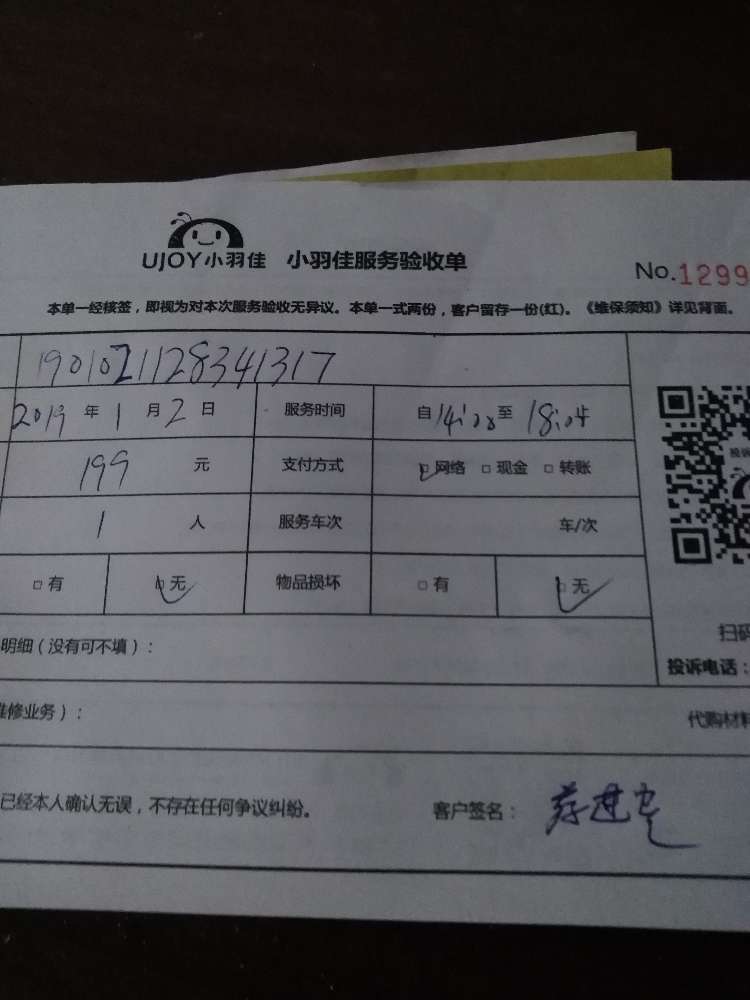 UJOY小羽佳 小羽佳服务验收单
No.1299
本单一经核签，即视为对本次服务验收无异议。本单一式两份，客户留存一份(红)。《维保须知》详见背面。
190102112834 1317
2019 年 1 月 2 日 服务时间 自 14:00 至 18:04
199 元 支付方式 □网络 □现金 □转账
1 人 服务车次 车/次
□有 □无 物品损坏 □有 □无
投诉
扫码
明细（没有可不填）：
投诉电话：
维修业务）： 代购材料
已经本人确认无误，不存在任何争议纠纷。 客户签名：